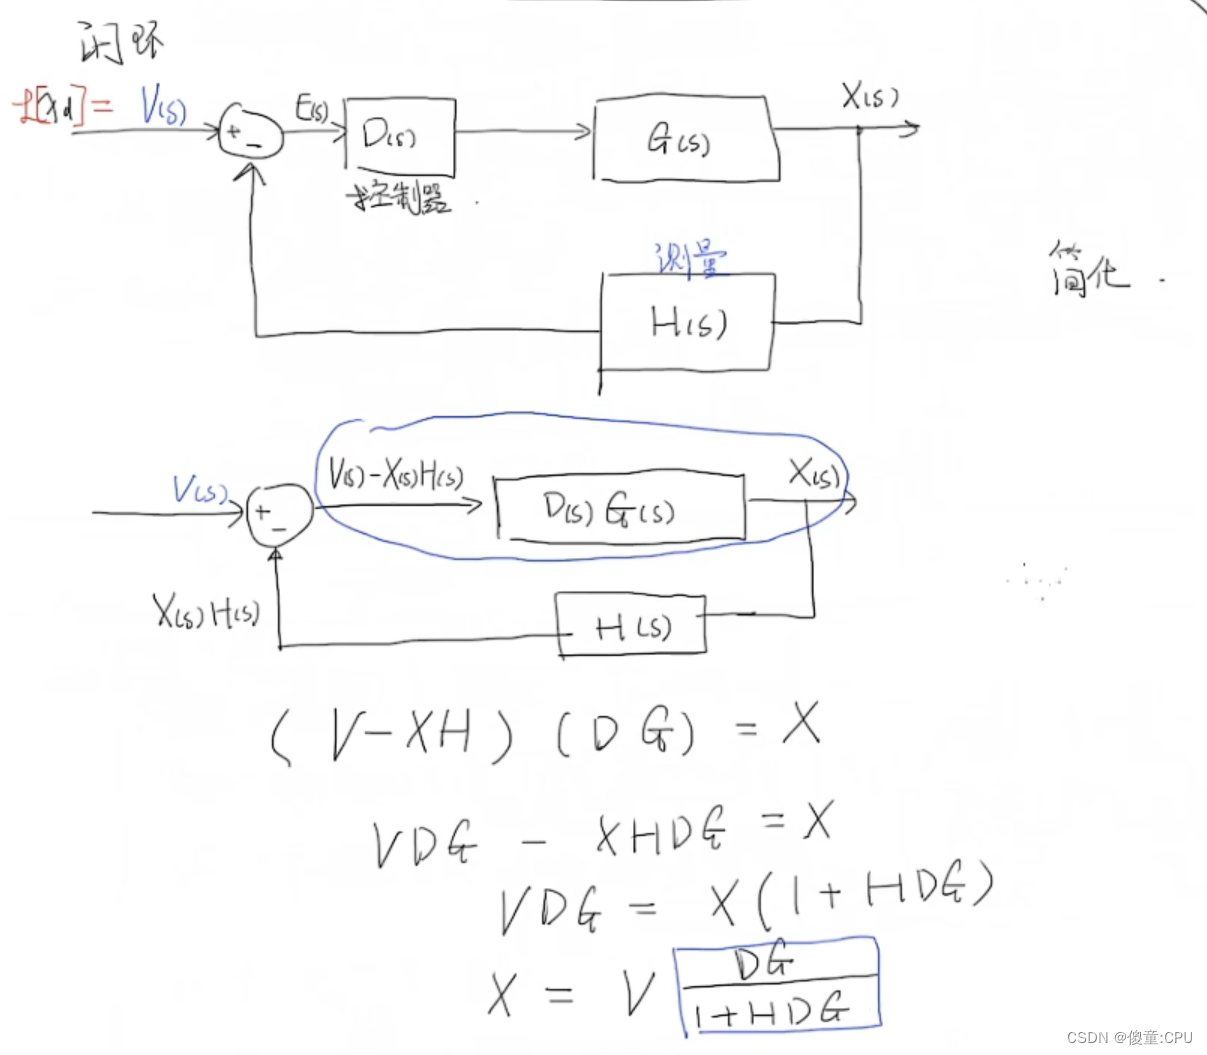 闭环
ℒ[xd] = V(s)
+
-
E(s)
D(s)
控制器
G(s)
X(s)
测量
H(s)
简化.
V(s)
+
-
V(s)-X(s)H(s)
D(s) G(s)
X(s)
X(s)H(s)
H(s)
(V-XH)(DG) = X
VDG - XHDG = X
VDG = X(1+HDG)
X = V DG
1+HDG
CSDN @傻童:CPU